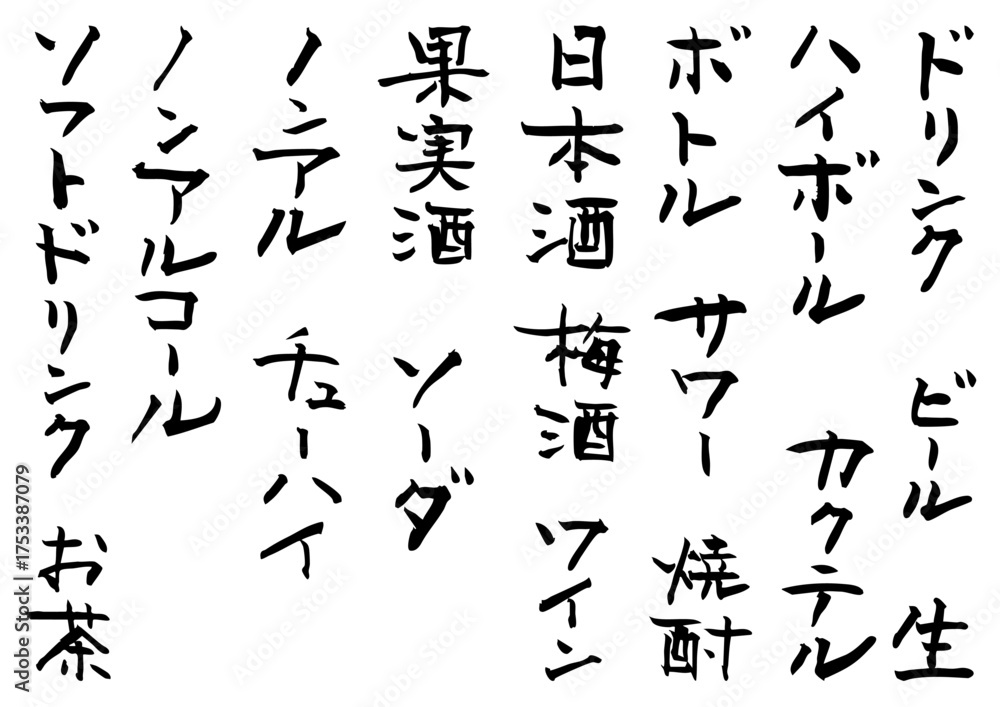 ドリンク ビール 生
ハイボール カクテル
ボトル サワー 焼酎
日本酒 梅酒 ワイン
果実酒 ソーダ
ノンアル チューハイ
ノンアルコール
ソフトドリンク お茶
Adobe Stock | #1753387079
Adobe Stock